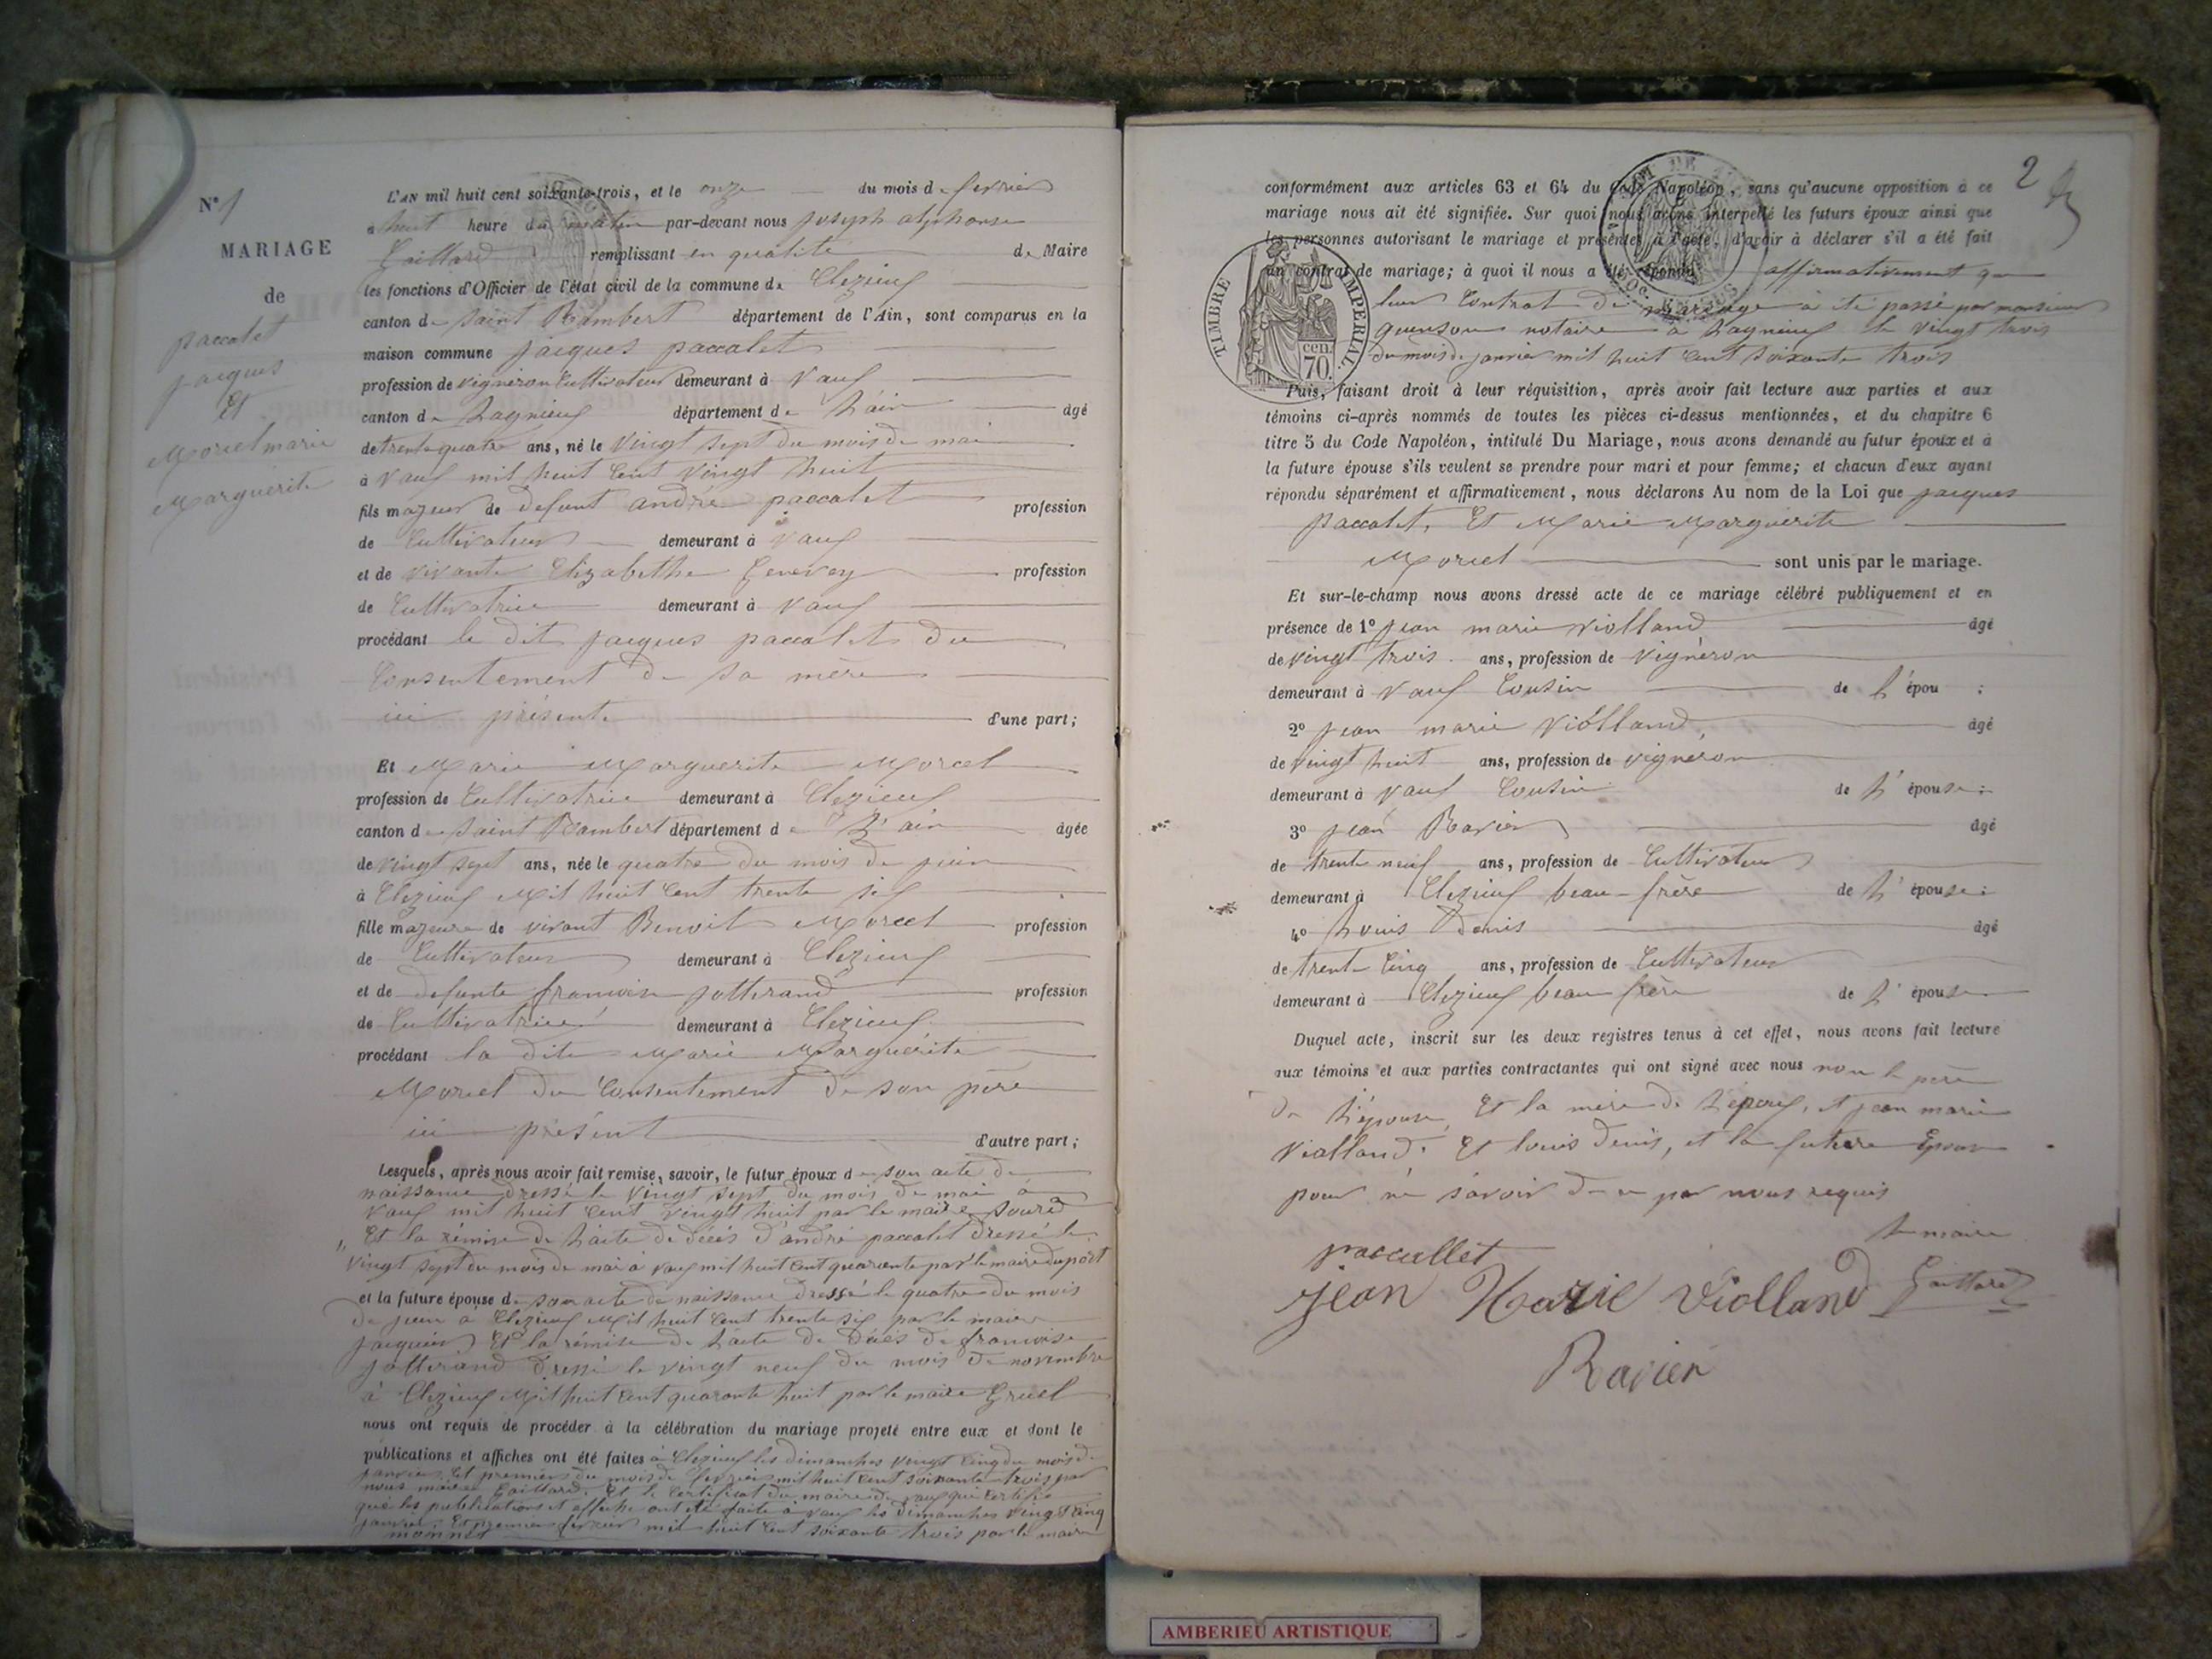 N° 1
MARIAGE
de
paccalet
jacques
Et
Morcel marie
Marguerite
L'AN mil huit cent soixante-trois, et le onze du mois de fevrier
a huit heure du matin par-devant nous joseph alphonse
Gaillard remplissant en qualité de Maire
les fonctions d'Officier de l'état civil de la commune de Clezieux
canton de Saint Rambert département de l'Ain, sont comparus en la
maison commune jacques paccalet
profession de vigneron Cultivateur demeurant à Vaux
canton de Lagnieux département de L'ain âgé
de trente quatre ans, né le Vingt sept du mois de mai
à Vaux mil huit Cent Vingt huit
fils majeur de defunt andré paccalet profession
de Cultivateur demeurant à Vaux
et de vivante Elizabethe Genevey profession
de Cultivatrice demeurant à Vaux
procédant le dit jacques paccalet du
Consentement de sa mère
ici présente d'une part;
Et Marie Marguerite Morcel
profession de Cultivatrice demeurant à Clezieux
canton de Saint Rambert département de L'ain âgée
de vingt sept ans, née le quatre du mois de juin
à Clezieux Mil huit Cent trente six
fille majeure de vivant Benoit Morcel profession
de Cultivateur demeurant à Clezieux
et de defunte francoise jotterand profession
de Cultivatrice demeurant à Clezieux
procédant la dite Marie Marguérite
Morcel du Consentement de son père
ici présent d'autre part;
Lesquels, après nous avoir fait remise, savoir, le futur époux de son acte de
naissance dressé le Vingt sept du mois de mai à
Vaux mil huit Cent Vingt huit par le maire
Et la rémise de L'acte de décés d'andré paccalet dressé le
Vingt sept du mois de mai à Vaux mil huit Cent quarante par le maire duport
et la future épouse de son acte de naissance dressé le quatre du mois
de juin à Clezieux Mil huit Cent trente six par le maire
jacquier Et la rémise de L'acte de Décès de francoise
jotterand Dressé le vingt neuf du mois de novembre
à Clezieux Mil huit Cent quarante huit par le maire Gruel
nous ont requis de procéder à la célébration du mariage projeté entre eux et dont le
publications et affiches ont été faites à Clezieux les dimanches vingt cinq du mois de
janvier Et premier du mois de fevrier mil huit cent soixante trois par
nous maire Gaillard. Et le Certificat du maire de Vaux qui Certifie
que les publications et affiche ont été faite à Vaux les dimanches Vingt Cinq
janvier Et premier fevrier mil huit Cent soixante trois par le maire
monnet
2
conformément aux articles 63 et 64 du Code Napoléon, sans qu'aucune opposition à ce
mariage nous ait été signifiée. Sur quoi nous avons interpellé les futurs époux ainsi que
les personnes autorisant le mariage et présentes à l'acte, d'avoir à déclarer s'il a été fait
un contrat de mariage; à quoi il nous a été répondu affirmativement que
leur Contrat de Mariage à été passé par monsieur
quenson notaire à Lagnieux le vingt trois
du mois de janvier mil huit Cent soixante trois
TIMBRE IMPERIAL.
70 cen.
Puis, faisant droit à leur réquisition, après avoir fait lecture aux parties et aux
témoins ci-après nommés de toutes les pièces ci-dessus mentionnées, et du chapitre 6
titre 5 du Code Napoléon, intitulé Du Mariage, nous avons demandé au futur époux et à
la future épouse s'ils veulent se prendre pour mari et pour femme; et chacun d'eux ayant
répondu séparément et affirmativement, nous déclarons Au nom de la Loi que jacques
paccalet, Et Marie Marguerite
Morcel sont unis par le mariage.
Et sur-le-champ nous avons dressé acte de ce mariage célébré publiquement et en
présence de 1° jean marie violland âgé
de vingt trois ans, profession de vigneron
demeurant à Vaux Cousin de L'épou ;
2° jean marie Violland, âgé
de vingt huit ans, profession de vigneron
demeurant à Vaux Cousin de L'épouse;
3° jean Ravier âgé
de trente neuf ans, profession de Cultivateur
demeurant à Clezieux beau-frère de L'épouse;
4° Louis Denis âgé
de trente Cinq ans, profession de Cultivateur
demeurant à Clezieux beau frère de L'épouse
Duquel acte, inscrit sur les deux registres tenus à cet effet, nous avons fait lecture
aux témoins et aux parties contractantes qui ont signé avec nous non le père
de L'épouse, Et la mère de L'époux, et jean marie
Violland. Et louis denis, et la future Epouse
pour né savoir de ce par nous requis
Le maire
paccallet
Jean Marie Violland Gaillard
Ravier
AMBERIEU ARTISTIQUE